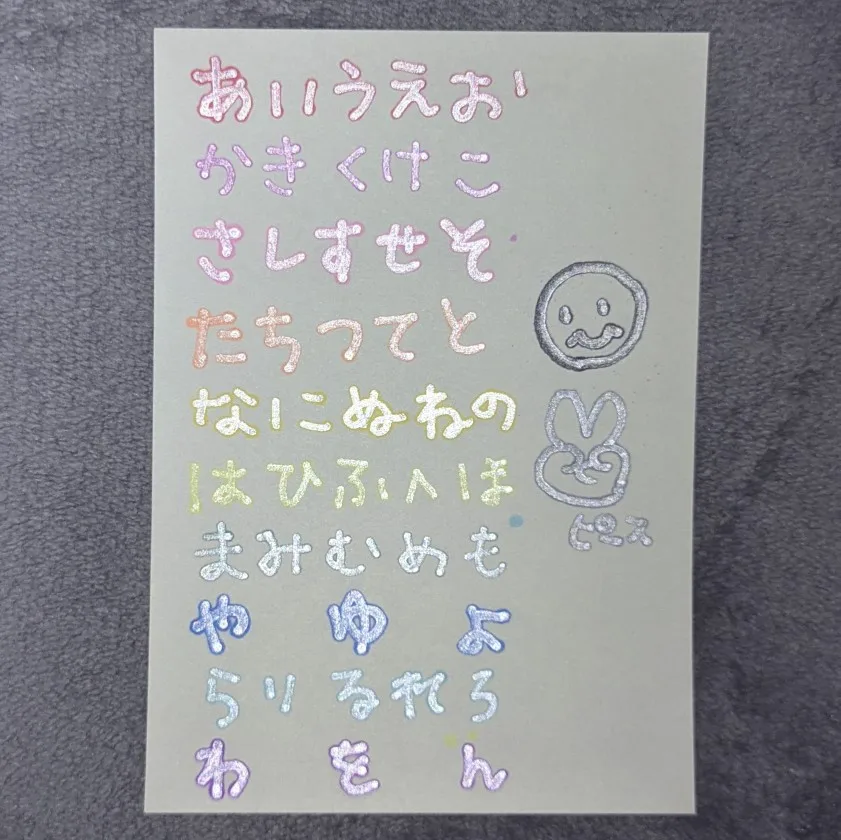 あいうえお
かきくけこ
さしすせそ
たちつてと
なにぬねの
はひふへほ
まみむめも
ピース
やゆよ
らりるれろ
わをん